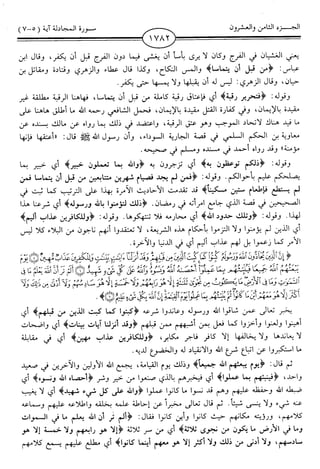 الجـــزء الثامن والعشرون
سورة المجادلة آية (٥-٧)
١٧٨٢
يعني الغشيان في الفرج وكان لا يرى بأساً أن يغشى فيما دون الفرج قبل أن يكفر، وقال ابن
عباس: ﴿من قبل أن يتماسا﴾ والمس النكاح، وكذا قال عطاء والزهري وقتادة ومقاتل بن
حيان، وقال الزهري: ليس له أن يقبلها ولا يمسها حتى يكفر.
وقوله: ﴿فتحرير رقبة﴾ أي فإعتاق رقبة كاملة من قبل أن يتماسا، فهاهنا الرقبة مطلقة غير
مقيدة بالإيمان، وفي كفارة القتل مقيدة بالإيمان، فحمل الشافعي رحمه الله ما أطلق هاهنا على
ما قيد هناك لاتحاد الموجب وهو عتق الرقبة، واعتضد في ذلك بما رواه عن مالك بسنده عن
معاوية بن الحكم السلمي في قصة الجارية السوداء، وأن رسول الله ﷺ قال: «أعتقها فإنها
مؤمنة» وقد رواه أحمد في مسنده ومسلم في صحيحه.
وقوله: ﴿ذلكم توعظون به﴾ أي تزجرون به ﴿والله بما تعملون خبير﴾ أي خبير بما
يصلحكم عليم بأحوالكم. وقوله: ﴿فمن لم يجد فصيام شهرين متتابعين من قبل أن يتماسا فمن
لم يستطع فإطعام ستين مسكيناً﴾ قد تقدمت الأحاديث الآمرة بهذا على الترتيب كما ثبت في
الصحيحين في قصة الذي جامع امرأته في رمضان. ﴿ذلك لتؤمنوا بالله ورسوله﴾ أي شرعنا هذا
لهذا. وقوله: ﴿وتلك حدود الله﴾ أي محارمه فلا تنتهكوها. وقوله: ﴿وللكافرين عذاب أليم﴾
أي الذين لم يؤمنوا ولا التزموا بأحكام هذه الشريعة، لا تعتقدوا أنهم ناجون من البلاء كلا ليس
الأمر كما زعموا بل لهم عذاب أليم أي في الدنيا والآخرة.
يخبر تعالى عمن شاقوا الله ورسوله وعاندوا شرعه ﴿كبتوا كما كبت الذين من قبلهم﴾ أي
أهينوا ولعنوا وأخزوا كما فعل بمن أشبههم ممن قبلهم ﴿وقد أنزلنا آيات بينات﴾ أي واضحات
لا يعاندها ولا يخالفها إلا كافر فاجر مكابر، ﴿وللكافرين عذاب مهين﴾ أي في مقابلة
ما استكبروا عن اتباع شرع الله والانقياد له والخضوع لديه.
ثم قال: ﴿يوم يبعثهم الله جميعاً﴾ وذلك يوم القيامة، يجمع الله الأولين والآخرين في صعيد
واحد، ﴿فينبئهم بما عملوا﴾ أي فيخبرهم بالذي صنعوا من خير وشر ﴿أحصاه الله ونسوه﴾ أي
ضبطه الله وحفظه عليهم وهم قد نسوا ما كانوا عملوا ﴿والله على كل شيء شهيد﴾ أي لا يغيب
عنه شيء ولا ينسى شيئاً. ثم قال تعالى مخبراً عن إحاطة علمه بخلقه واطلاعه عليهم وسماعه
كلامهم، ورؤيته مكانهم حيث كانوا وأين كانوا فقال: ﴿ألم تر أن الله يعلم ما في السموات
وما في الأرض ما يكون من نجوى ثلاثة﴾ أي من سر ثلاثة ﴿إلا هو رابعهم ولا خمسة إلا هو
سادسهم، ولا أدنى من ذلك ولا أكثر إلا هو معهم أينما كانوا﴾ أي مطلع عليهم يسمع كلامهم